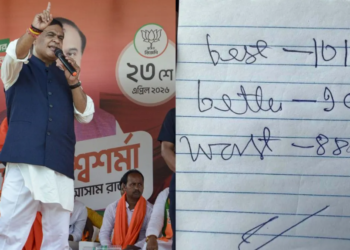 ২৩ শে
এপ্রিল ২০২৬
শ্বশর্মা
আসাম
best – 101
better – 90
worst – 88